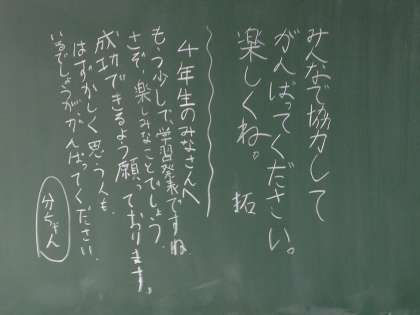 みんなで協力して
がんばってください。
楽しくね。 拓
4年生のみなさんへ
もう少しで、学習発表ですね
さぞ、楽しみなことでしょう。
成功できるよう願っております。
はずかしく思う人も、
いるでしょうが、がんばってください。